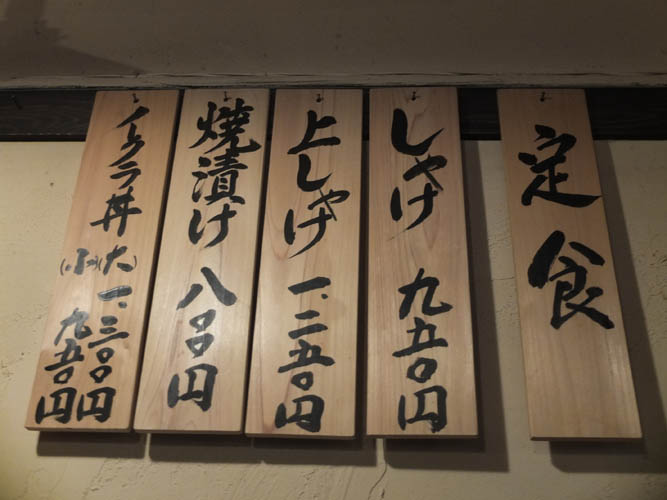 定食
しゃけ 九五〇円
上しゃけ 一、二五〇円
焼漬け 八〇〇円
イクラ丼
(大) 一、三〇〇円
(小) 九五〇円